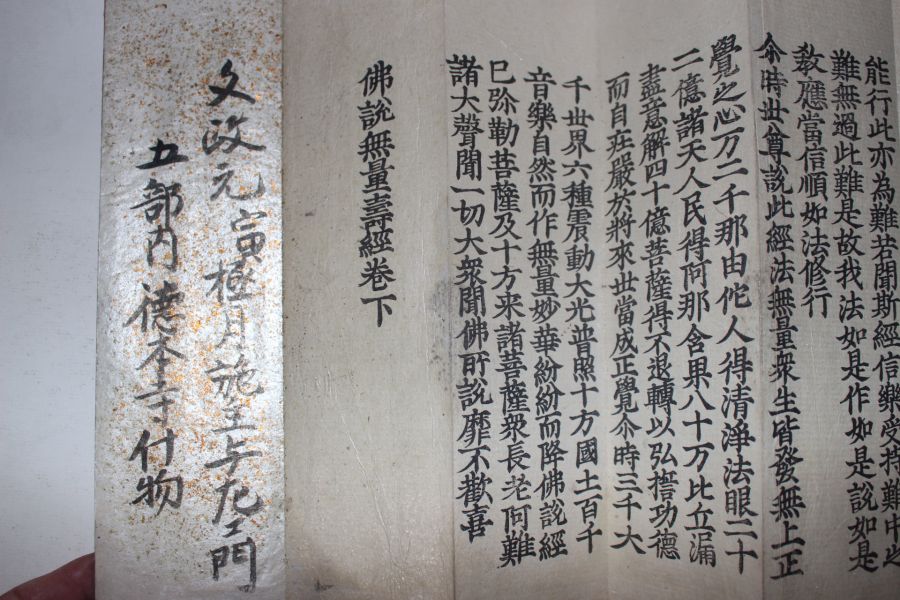 能行此亦為難若聞斯經信樂受持難中之
難無過此難是故我法如是作如是說如是
教應當信順如法修行
尒時世尊說此經法無量衆生皆發無上正
覺之心万二千那由佗人得清淨法眼二十
二億諸天人民得阿那含果八十万比丘漏
盡意解四十億菩薩得不退轉以弘誓功德
而自莊嚴於將來世當成正覺尒時三千大
千世界六種震動大光普照十方國土百千
音樂自然而作無量妙華紛紛而降佛說經
已弥勒菩薩及十方来諸菩薩衆長老阿難
諸大聲聞一切大衆聞佛所說靡不歡喜
佛說無量壽經卷下
文政元寅極月施主与左ェ門
五部内德本寺付物